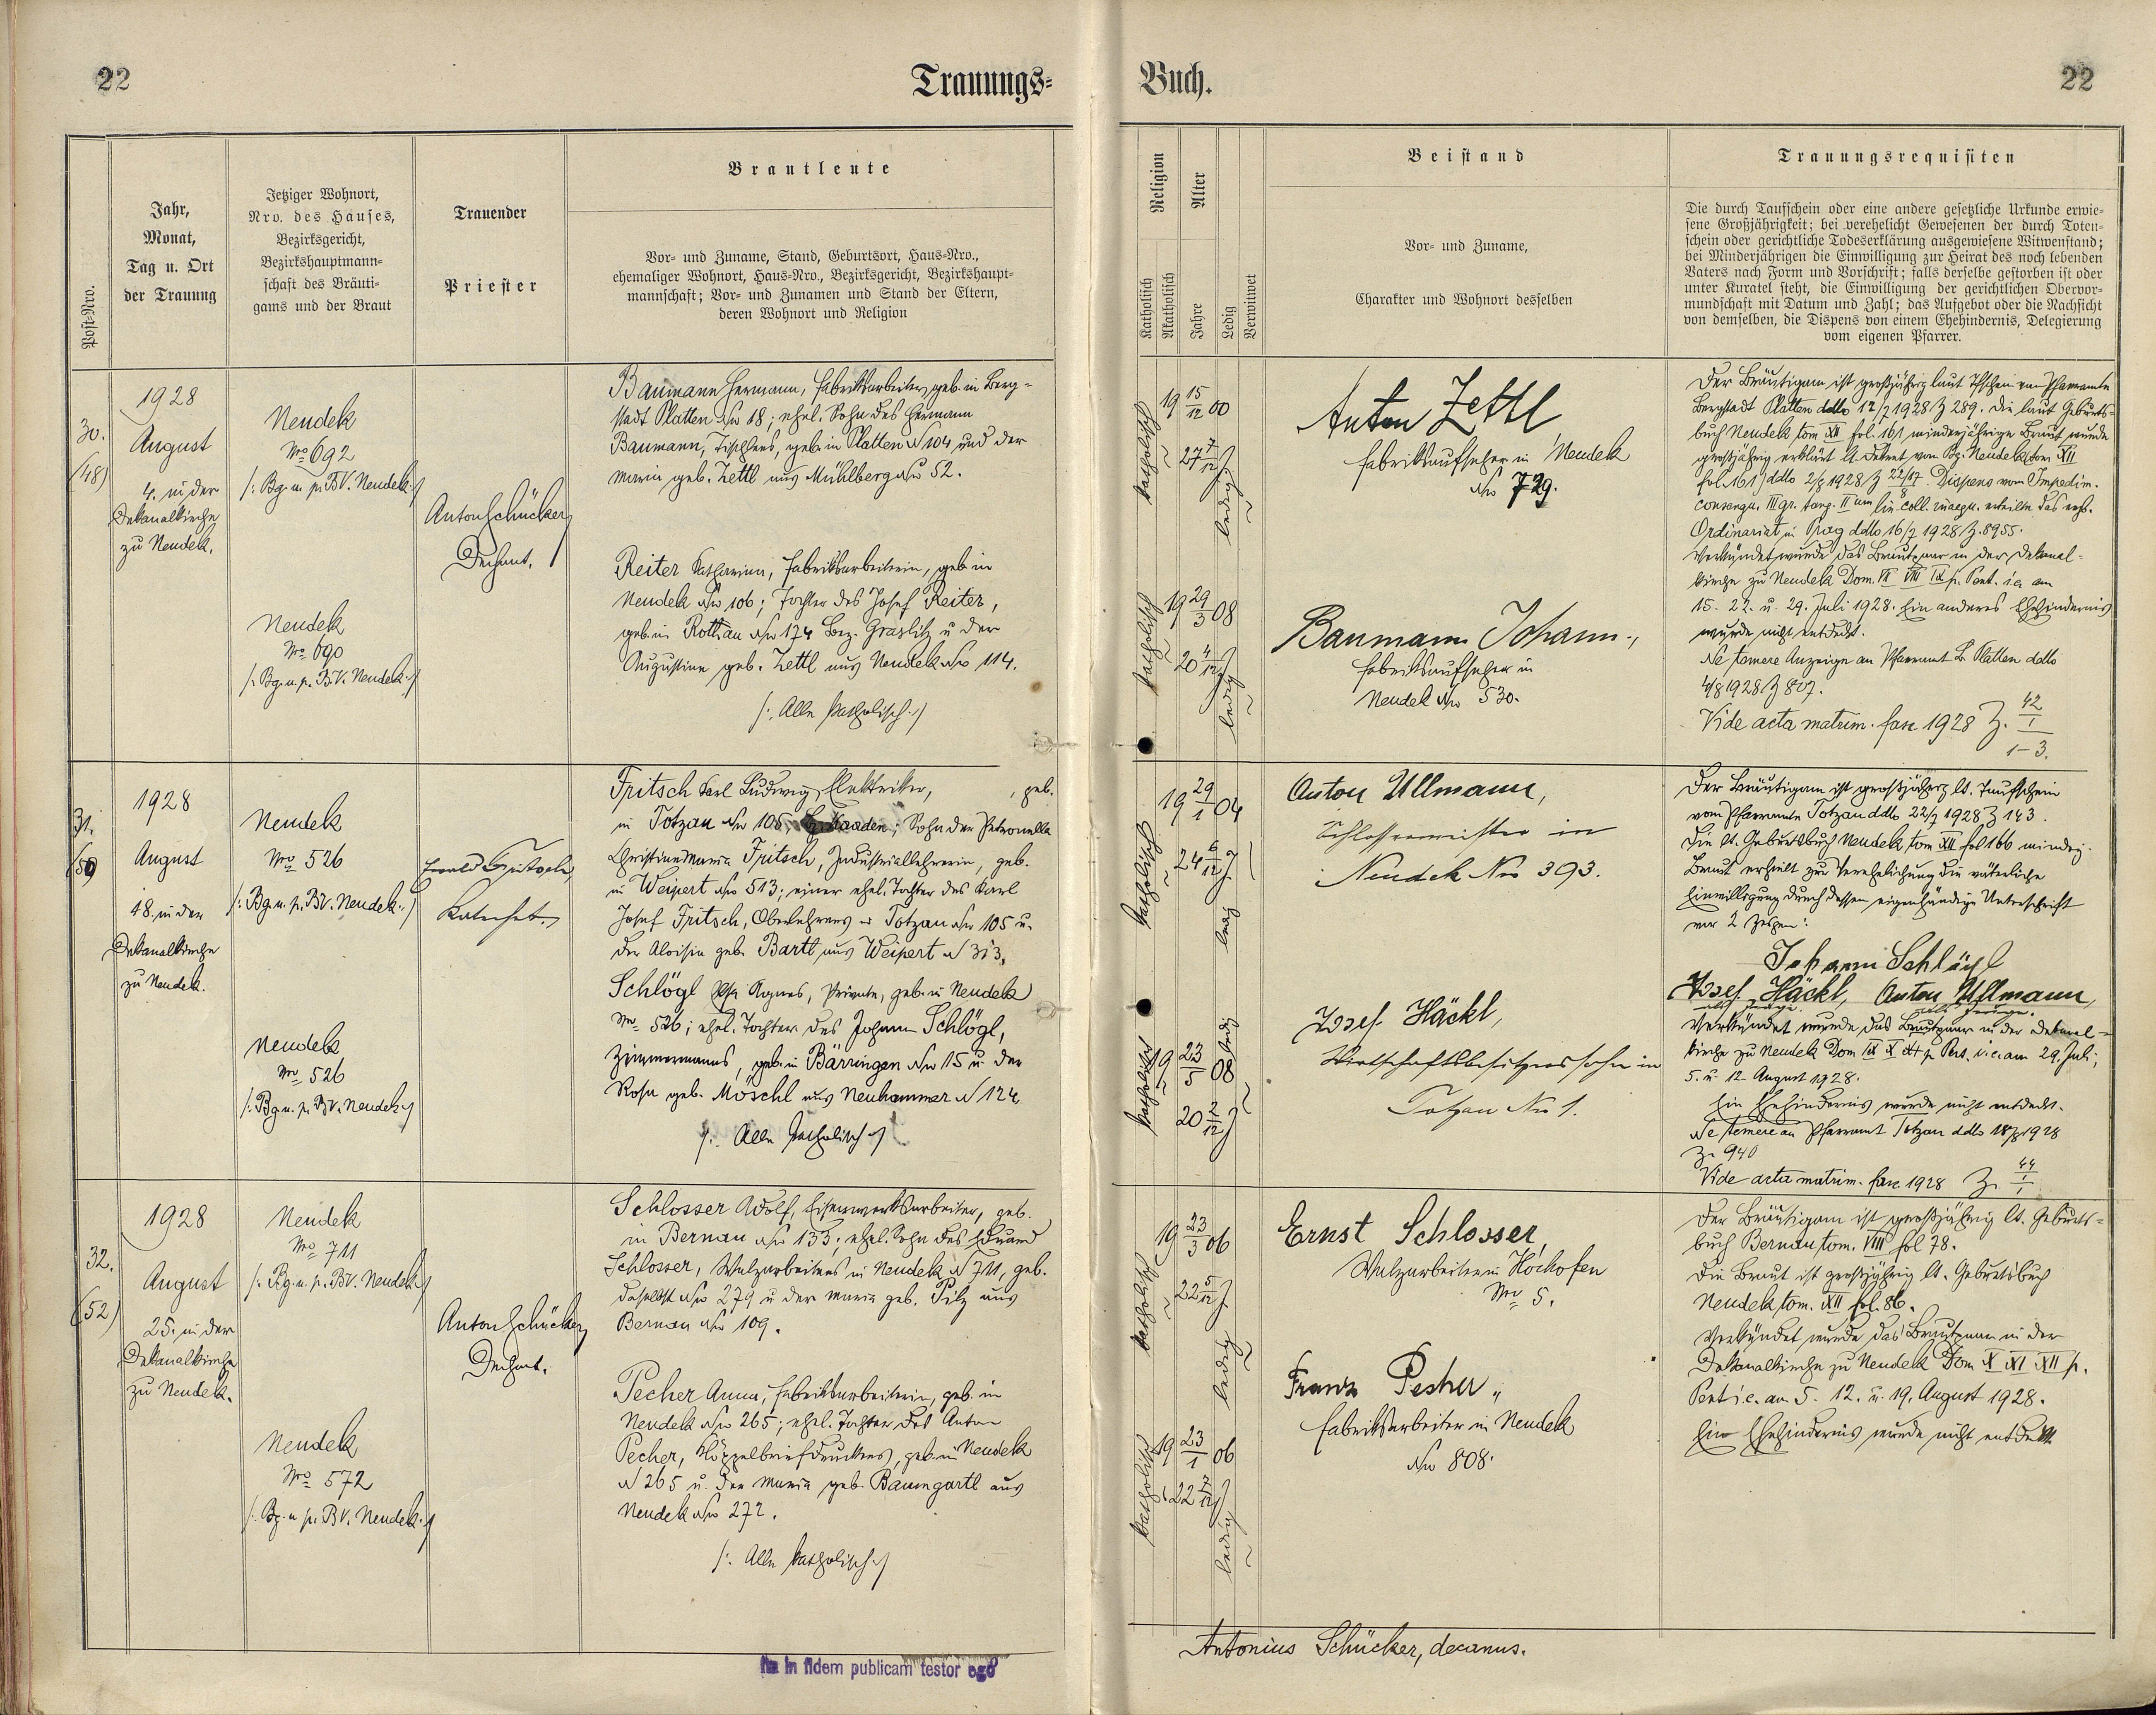 22
Trauungs-
Buch.
22
Post-Nro.
Jahr,
Monat,
Tag u. Ort
der Trauung
Jetziger Wohnort,
Nro. des Hauses,
Bezirksgericht,
Bezirkshauptmann-
schaft des Bräuti-
gams und der Braut
Trauender
Priester
Brautleute
Vor- und Zuname, Stand, Geburtsort, Haus-Nro.,
ehemaliger Wohnort, Haus-Nro., Bezirksgericht, Bezirkshaupt-
mannschaft; Vor- und Zunamen und Stand der Eltern,
deren Wohnort und Religion
Religion
Katholisch
Akatholisch
Alter
Jahre
Ledig
Verwitwet
Beistand
Vor- und Zuname,
Charakter und Wohnort desselben
Trauungsrequisiten
Die durch Taufschein oder eine andere gesetzliche Urkunde erwie-
sene Großjährigkeit; bei verehelicht Gewesenen der durch Toten-
schein oder gerichtliche Todeserklärung ausgewiesene Witwenstand;
bei Minderjährigen die Einwilligung zur Heirat des noch lebenden
Vaters nach Form und Vorschrift; falls derselbe gestorben ist oder
unter Kuratel steht, die Einwilligung der gerichtlichen Obervor-
mundschaft mit Datum und Zahl; das Aufgebot oder die Nachsicht
von demselben, die Dispens von einem Ehehindernis, Delegierung
vom eigenen Pfarrer.
30.
(48)
1928
August
4. in der
Dekanalkirche
zu Neudek.
Neudek
No 692
/: Bg. u. p. BV. Neudek :/
Neudek
No 690
/: Bg. u. p. BV. Neudek :/
Anton Schücker
Dechant.
Baumann Hermann, Fabriksarbeiter, geb. in Berg-
stadt Platten No 18; ehel. Sohn des Hermann
Baumann, Tischlers, geb. in Platten N 104 und der
Maria geb. Zettl aus Mühlberg No 52.
Reiter Katharina, Fabriksarbeiterin, geb. in
Neudek No 106; Tochter des Josef Reiter,
geb. in Rothau No 174 Bez. Graslitz u. der
Augustine geb. Zettl aus Neudek No 114.
/: Alle katholisch :/
katholisch
19 15/12 00
27 7/12 J
ledig
katholisch
19 29/3 08
20 4/12 J
ledig
Anton Zettl
Fabriksaufseher in Neudek
No 729.
Baumann Johann.,
Fabriksaufseher in
Neudek No 530.
Der Bräutigam ist großjährig laut Tfschein vom Pfarramte
Bergstadt Platten ddto 12/7 1928 Z 289. Die laut Geburts-
buch Neudek tom XII fol. 161 minderjährige Braut wurde
großjährig erklärt lt. Dekret vom Bg. Neudek (tom XII
fol. 161) ddto 2/8 1928 Z Dispens vom Impedim.
consangu. III gr. tang. II um lin. coll. inaequ. erteilte das erzb.
Ordinariat in Prag ddto 16/7 1928 Z. 8955.
Verkündet wurde das Brautpaar in der Dekanal-
kirche zu Neudek Dom. VII VIII IX p. Pent. i.e. am
15. 22. u. 29. Juli 1928. Ein anderes Ehehindernis
wurde nicht entdeckt.
Ne temere Anzeige an Pfarramt B. Platten ddto
4/8 1928 Z 807.
Vide acta matrim. fasc 1928 Z. 42/1
1-3.
31.
(50)
1928
August
18. in der
Dekanalkirche
zu Neudek.
Neudek
No 526
/: Bg. u. p. BV. Neudek :/
Neudek
No 526
/: Bg. u. p. BV. Neudek :/
Katechet
Fritsch Karl Ludwig, Elektriker, , geb.
in Totzau No 105, Bz. Kaaden; Sohn der Petronella
Christine Maria Fritsch, Industriallehrerin, geb.
in Weipert No 513; einer ehel. Tochter des Karl
Josef Fritsch, Oberlehrers in Totzau No 105 u.
der Aloisia geb. Bartl aus Weipert N 313.
Schlögl Agnes, Private, geb. in Neudek
No 526; ehel. Tochter des Johann Schlögl,
Zimmermanns, geb. in Bärringen No 15 u. der
Rosa geb. Möschl aus Neuhammer N 124.
/: Alle katholisch :/
katholisch
19 29/1 04
24 6/12 J
ledig
katholisch
19 23/5 08
20 2/12 J
ledig
Anton Ullmann,
Schlossermeister in
Neudek No 393.
Josef Häckl,
Wirtschaftsbesitzerssohn in
Totzau No 1.
Der Bräutigam ist großjährig lt. Taufschein
vom Pfarramte Totzau ddto 22/7 1928 Z 143.
Die lt. Geburtsbuch Neudek tom XII fol 166 mindrj.
Braut erhielt zur Verehelichung die väterliche
Einwilligung durch dessen eigenhändige Unterschrift
vor 2 Zeugen:
Johann Schlögl
Josef Häckl, Anton Ullmann,
als Zeuge. als Zeuge.
Verkündet wurde das Brautpaar in der Dekanal-
kirche zu Neudek Dom IX X XI p. Pent. i.e. am 29. Juli,
5. u. 12. August 1928.
Ein Ehehindernis wurde nicht entdeckt.
Ne temere an Pfarramt Totzau ddto 18/8 1928
Z. 940
Vide acta matrim. fasc 1928 Z. 44/1
32.
(52)
1928
August
25. in der
Dekanalkirche
zu Neudek.
Neudek
No 711
/: Bg. u. p. BV. Neudek :/
Neudek
No 572
/: Bg. u. p. BV. Neudek :/
Anton Schücker
Dechant.
Schlosser Adolf, Eisenwerksarbeiter, geb.
in Bernau No 133; ehel. Sohn des Eduard
Schlosser, Walzarbeiters in Neudek N 711, geb.
daselbst No 279 u. der Maria geb. Pilz aus
Bernau No 109.
Pecher Anna, Fabriksarbeiterin, geb. in
Neudek No 265; ehel. Tochter des Anton
Pecher, geb. in Neudek
N 265 u. der Maria geb. Baumgartl aus
Neudek No 272.
/: Alle katholisch :/
katholisch
19 23/3 06
22 5/12 J
ledig
katholisch
19 23/1 06
22 7/12 J
ledig
Ernst Schlosser,
Walzarbeiter in Hochofen
No 5.
Franz Pecher,
Fabriksarbeiter in Neudek
No 808.
Der Bräutigam ist großjährig lt. Geburts-
buch Bernau tom. VIII fol 78.
Die Braut ist großjährig lt. Geburtsbuch
Neudek tom. XII fol. 86.
Verkündet wurde das Brautpaar in der
Dekanalkirche zu Neudek Dom X XI XII p.
Pent i.e. am 5. 12. u. 19. August 1928.
Ein Ehehindernis wurde nicht entdeckt
in fidem publicam testor ego
Antonius Schücker, decanus.